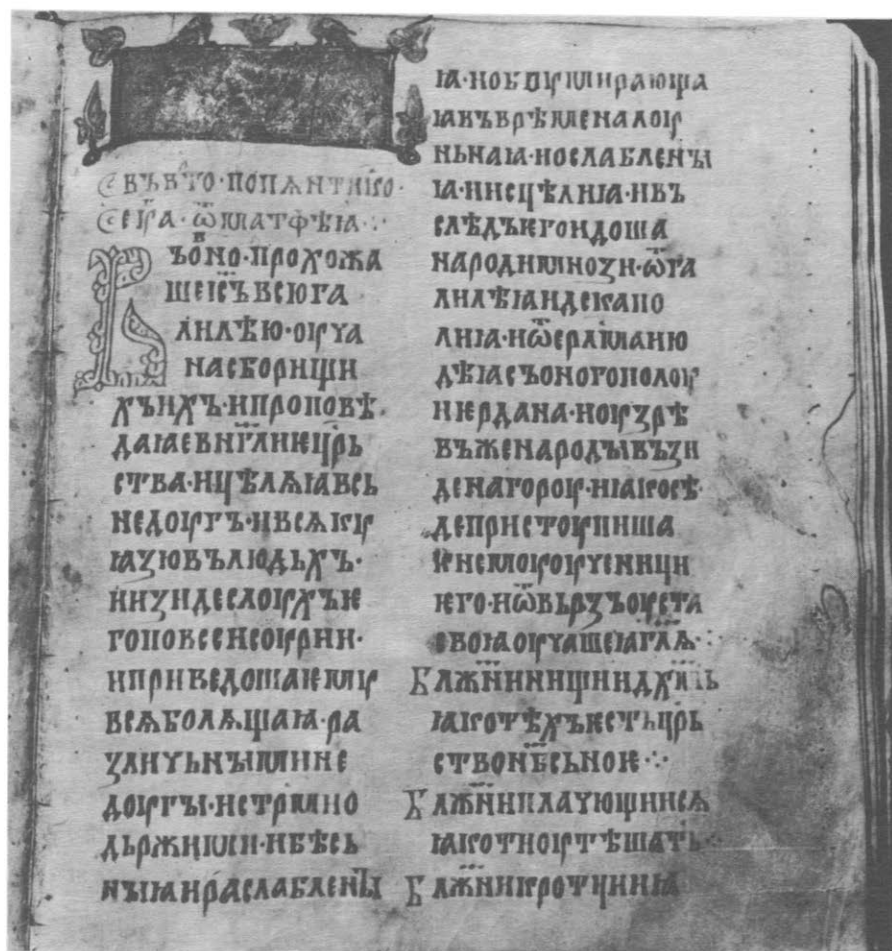 въ в҃то· по пѧнтико·
сꙗ· ѿ матфѣꙗ ⁘
Въ оно· прохожа
ше і҃съ всю га
лилѣю· оуча
на сборищи
хъ ихъ· и проповѣ
даꙗ еваⷩ҇г҃лиѥ цр҃ь
ства· ицѣлѧꙗ всь
недоугъ· и всѧкꙋ
ꙗзю въ людьхъ·
и изиде слоухъ ѥ
го по всеи соурии·
и приведошаѥмꙋ
всѧ болѧщаꙗ· ра
зличьнымине
доугы· и стрмно
дьржими· и бѣсь
ныꙗ и раслаблены
ꙗ· и обоумирающа
ꙗ въ врѣмена лоу
ньнаꙗ· и ослаблены
ꙗ· и исцѣлиꙗ· и въ
слѣдъ ѥго идоша
народи мнози· ѿ га
лилѣꙗ и декапо
лиꙗ· и ѿ ерл҃ма и ию
дѣꙗ съ оного полоу
иѥрдана· и оузрѣ
въ же народы възи
де на гороу· и ꙗко сѣ·
де пристоупиша
к немоу оученици
ѥго· и ѿвьрзъ оуста
своꙗ оучаше ꙗ гл҃ѧ ⁘
Блж҃нии нищии дх҃мь
ꙗко тѣхъ ѥсть цр҃ь
ство нб҃сьноѥ ⁘
Блж҃нии плачющиисѧ
ꙗко ти оутѣшать·
Блж҃ни кротции ꙗ